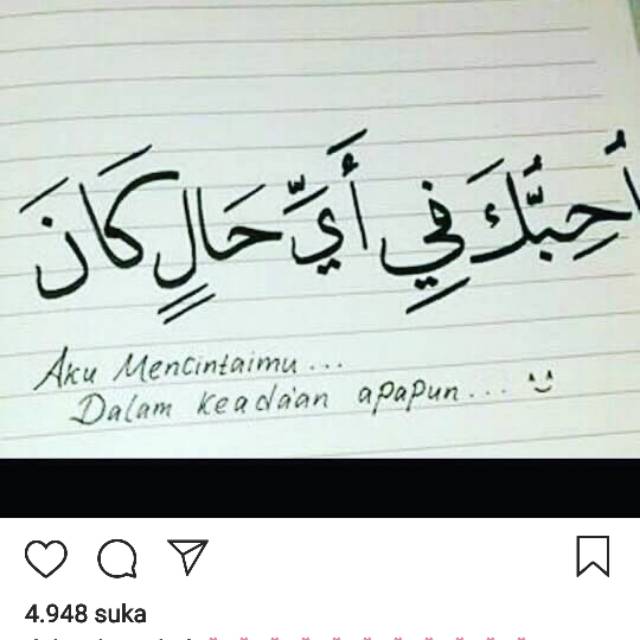 أُحِبُّكَ فِي أَيِّ حَالٍ كَانَ
Aku Mencintaimu...
Dalam keada'an apapun... :)
4.948 suka